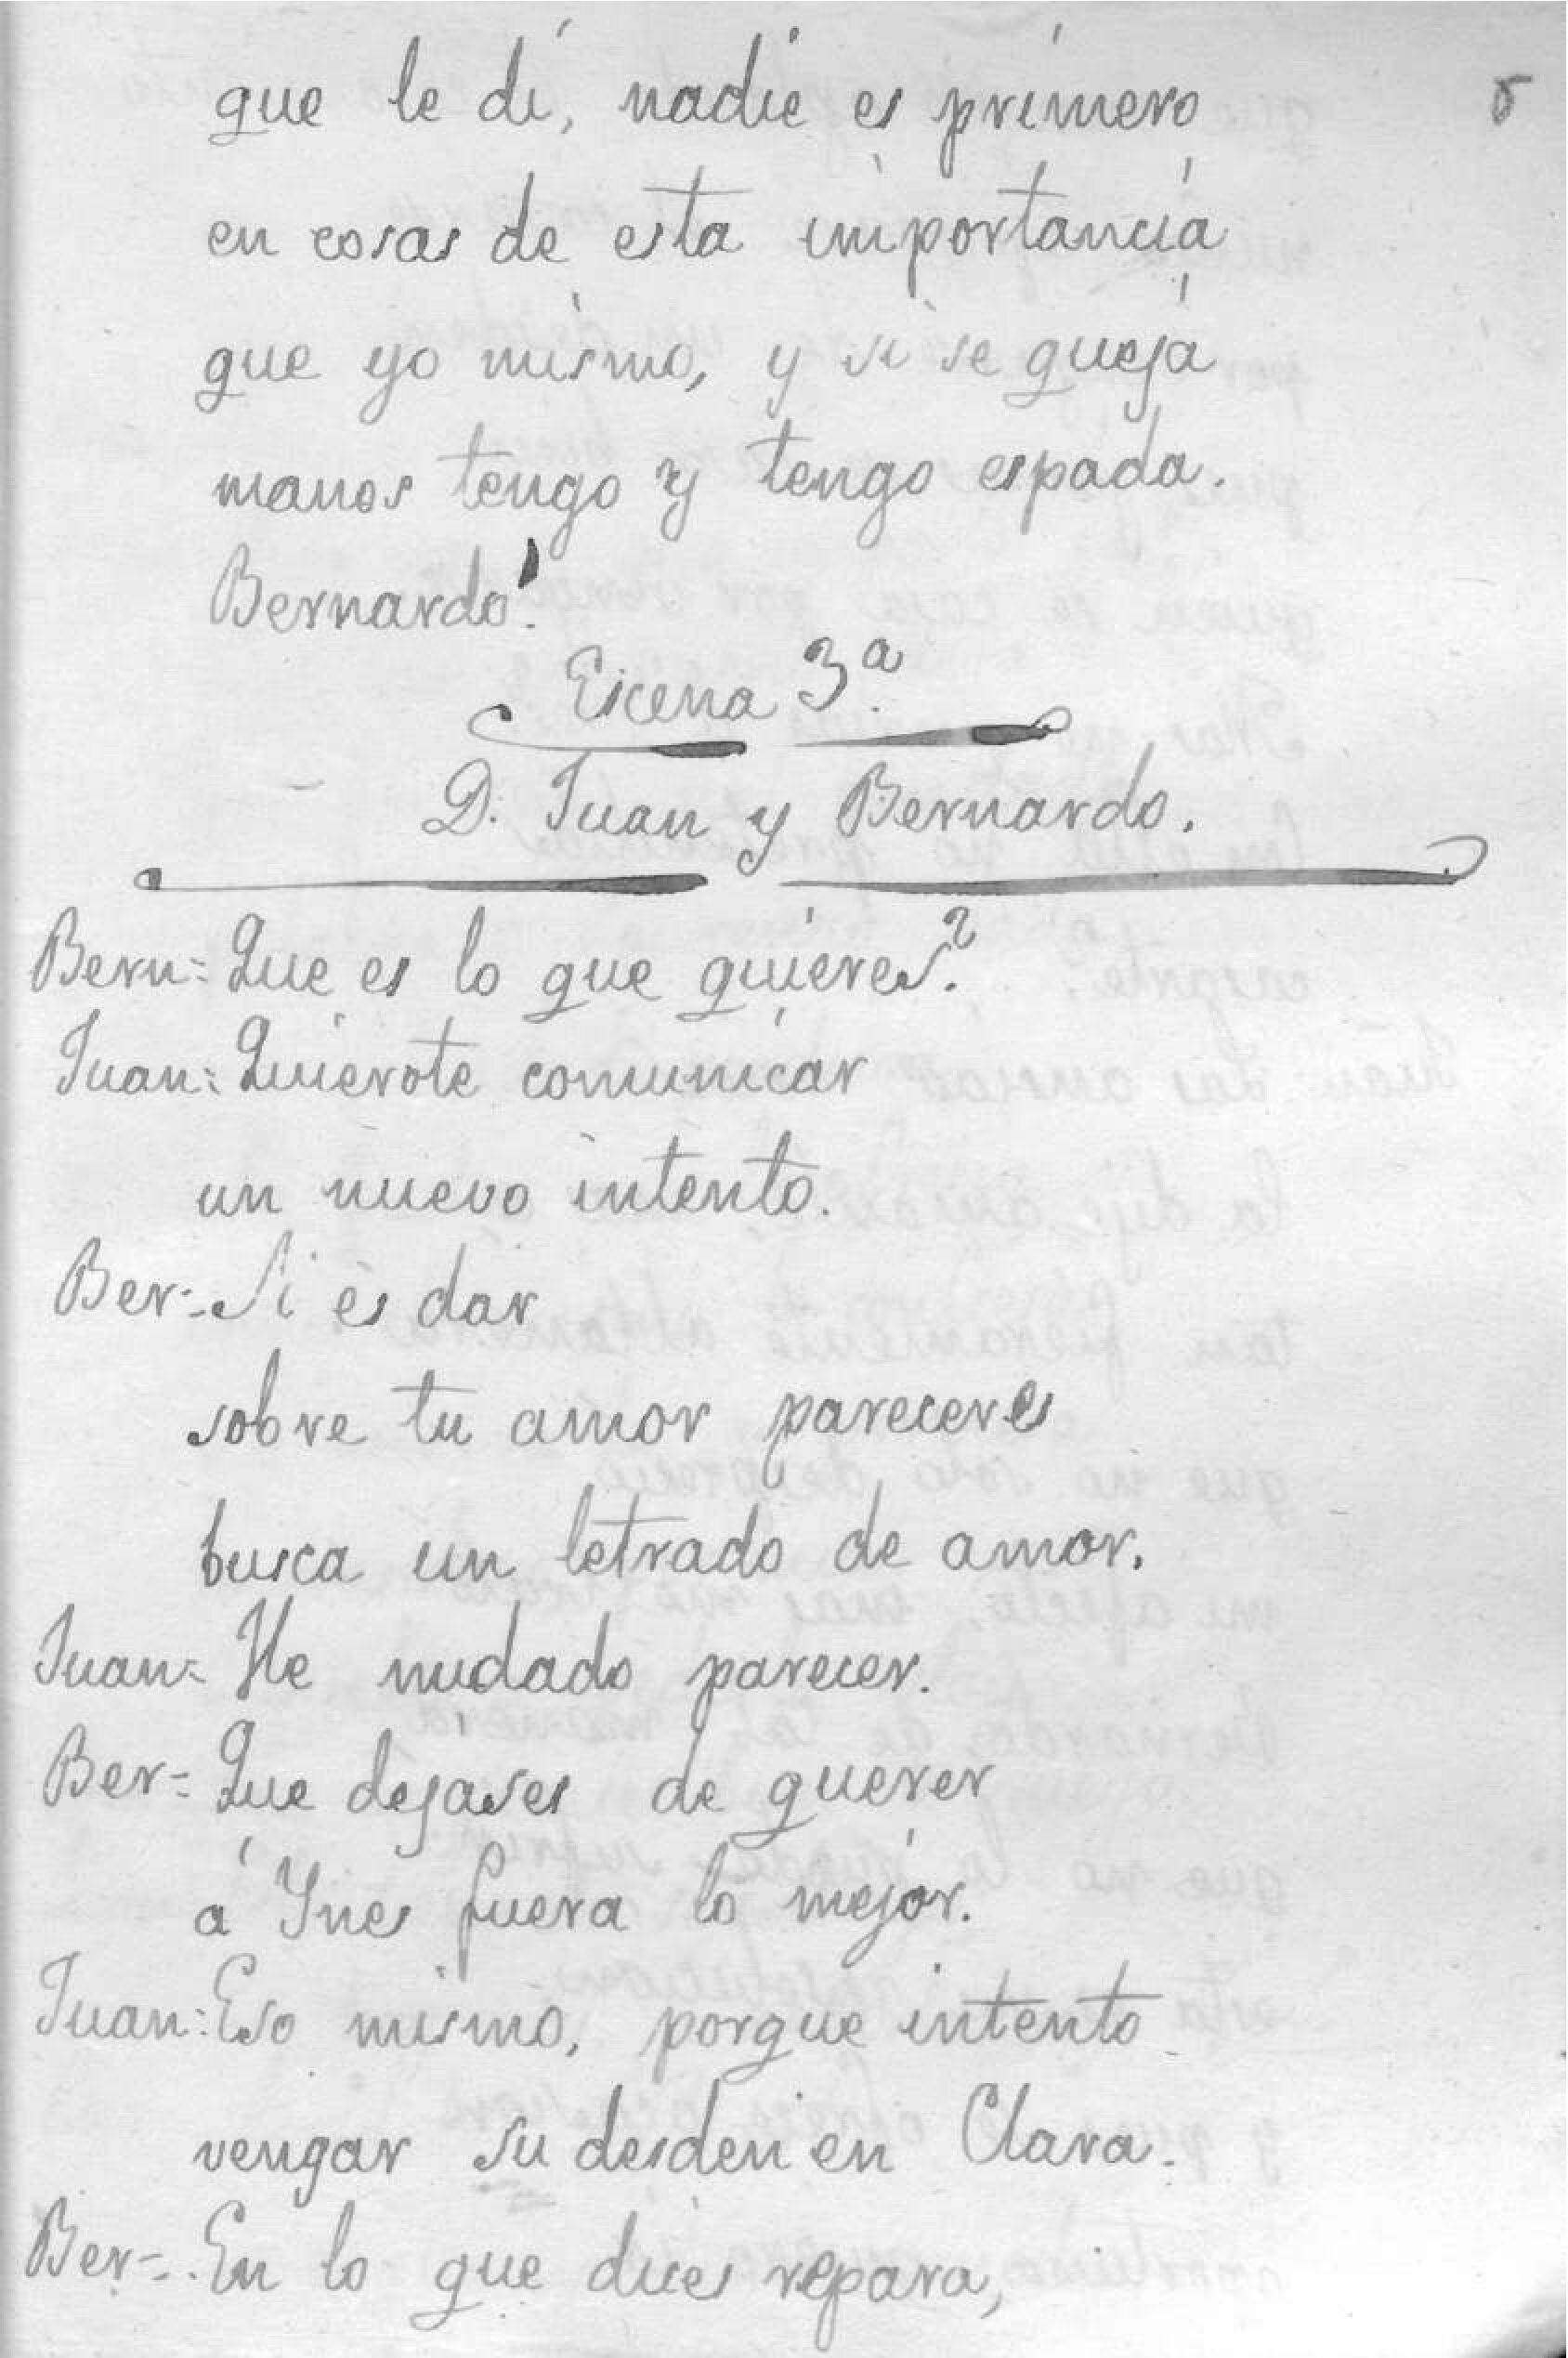 que le dí, nadie es primero
en cosas de esta importancia
que yo mismo, y si se queja
manos tengo y tengo espada.
Bernardo!
Escena 3ª.
D. Juan y Bernardo.
Bern= Que es lo que quieres?
Juan: Quierote comunicar
un nuevo intento.
Ber-. Si es dar
sobre tu amor pareceres
busca un letrado de amor.
Juan= He mudado parecer.
Ber= Que dejases de querer
á Ynes fuera lo mejor.
Juan: Eso mismo, porque intento
vengar su desden en Clara.
Ber-. En lo que dices repara,